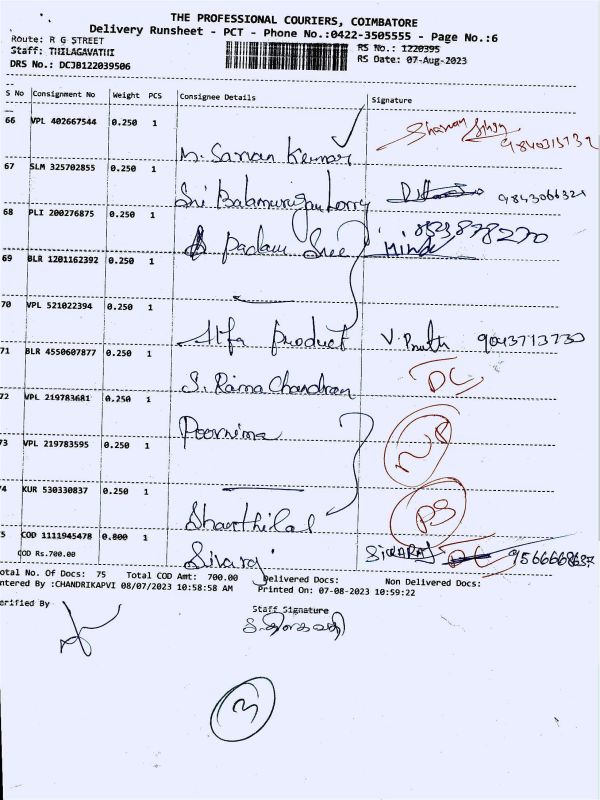 THE PROFESSIONAL COURIERS, COIMBATORE
Delivery Runsheet - PCT - Phone No.:0422-3505555 - Page No.:6
Route: R G STREET
RS No.: 1220395
Staff: THILAGAVATHI
RS Date: 07-Aug-2023
DRS No.: DCJB122039506
S No Consignment No Weight PCS Consignee Details Signature
66 VPL 402667544 0.250 1
Sharan 9840315732
N. Sarvan Kumar
67 SLM 325702855 0.250 1
Sri Balamurugan Lorry 9843066321
68 PLI 200276875 0.250 1
Padam Sree
69 BLR 1201162392 0.250 1
70 VPL 521022394 0.250 1
Alfa product V. 9043713730
71 BLR 4550607877 0.250 1
S. Rama Chandran DC
72 VPL 219783681 0.250 1
Poornima
73 VPL 219783595 0.250 1
74 KUR 530330837 0.250 1
PS
Shanthilal
75 COD 1111945478 0.800 1
COD Rs.700.00
Sivaraj SIVARAJ DC 9566668637
Total No. Of Docs: 75 Total COD Amt: 700.00 Delivered Docs: Non Delivered Docs:
Entered By :CHANDRIKAPVI 08/07/2023 10:58:58 AM Printed On: 07-08-2023 10:59:22
Verified By Staff Signature
3